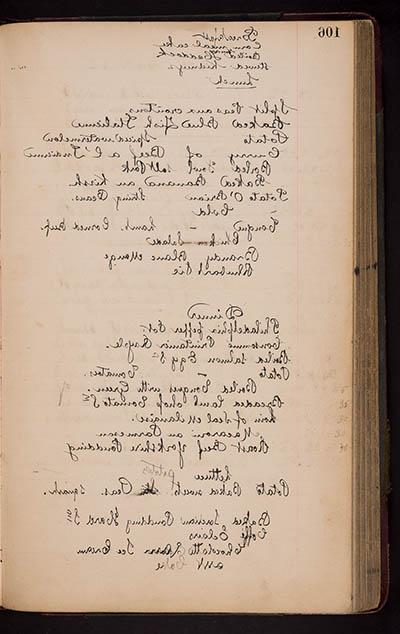 106
Breakfast
Corn meal cake
Broiled Haddock
Stewed Kidneys
Lunch
Split Peas aux croutons
Baked Blue Fish Italienne
Potato Sliced watermelon
Curry of Beef a l'Indienne
Boiled Fowl salt Pork
Baked Banana au Kirsh
Potato O'Brian String Beans.
Cold
Tongue - Lamb. Corned Beef.
Chicken Salade
Brandy Blanc Mange
Rhubarb Pie
Dinner
Philadelphia Pepper Pot.
Consomme Printaniere Royale.
Boiled Salmon Egg Sce
Potato - Tomatoes.
Boiled Tongue with Green.
Breaded Lamb chops Tomato Sce
Loin of Veal Milanaise
Macaroni au Parmesan
Roast Beef Yorkshire Pudding
Lettuce
potatoes
Potato Baked sweet Peas. Squash.
Baked Indian Pudding Hard Sce
Coffe Eclairs
Chocolatte Ice Cream
Cake